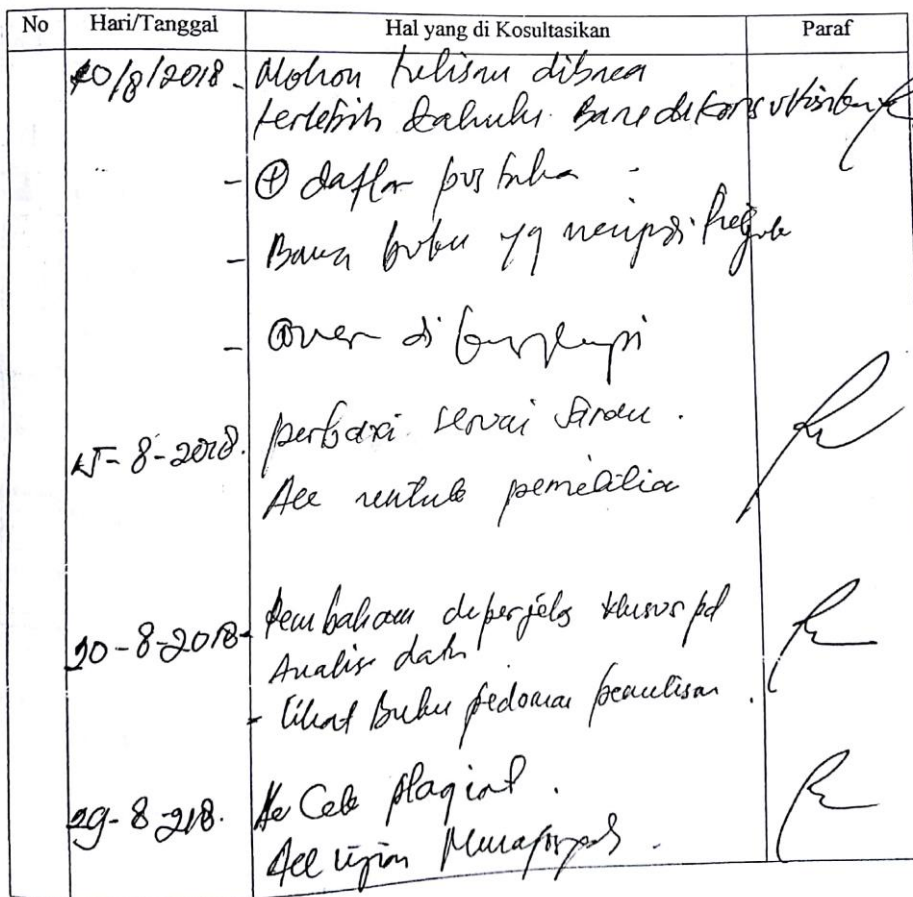 No Hari/Tanggal Hal yang di Kosultasikan Paraf
10/8/2018 - Mohon tulisan dibaca
terlebih dahulu. Baru dikonsultasikan
- + daftar pustaka
- Bawa buku yg menjadi
- Cover di lengkapi
15-8-2018. perbaiki sesuai saran.
Acc untuk penelitian
20-8-2018 - Pembahasan diperjelas khusus pd
Analisis data
- Lihat Buku pedoman penulisan.
29-8-218. Acc Cek plagiat.
Acc ujian Munaqosyah.